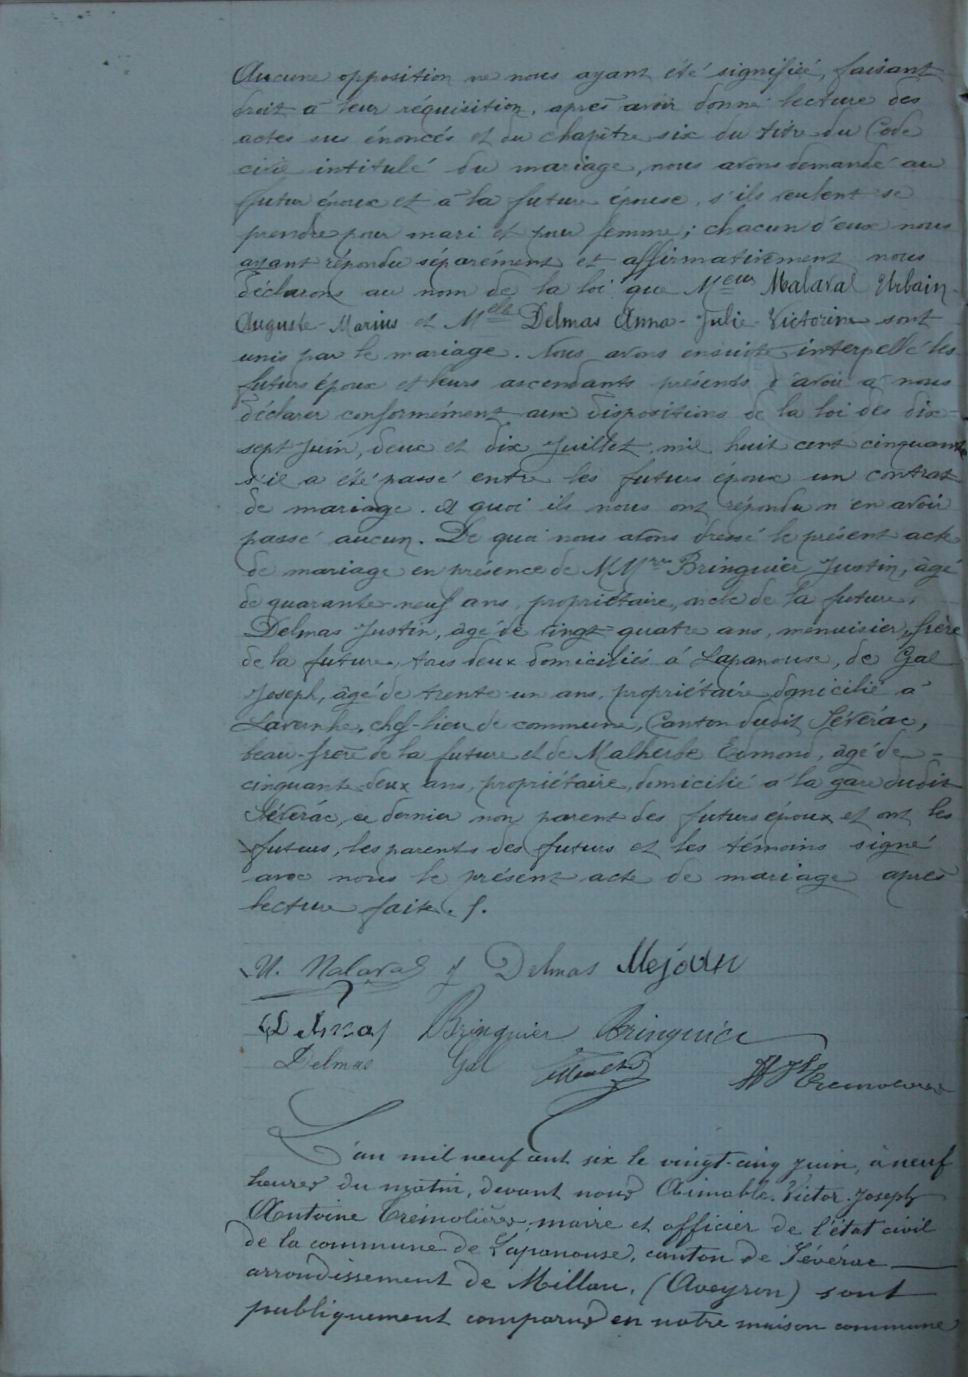 Aucune opposition ne nous ayant été signifiée, faisant
droit à leur réquisition, après avoir donné lecture des
actes sus énoncés et du chapitre six du titre du Code
civil intitulé du mariage, nous avons demandé au
futur époux et à la future épouse, s'ils veulent se
prendre pour mari et pour femme; chacun d'eux nous
ayant répondu séparément et affirmativement nous
déclarons au nom de la loi que Meur Malaval Urbain-
Auguste-Marius et Melle Delmas Anna-Julie-Victorine sont
unis par le mariage. Nous avons ensuite interpellé les
futurs époux et leurs ascendants présents d'avoir à nous
déclarer conformément aux dispositions de la loi des dix-
sept Juin, deux et dix Juillet mil huit cent cinquante
s'il a été passé entre les futurs époux un contrat
de mariage. A quoi ils nous ont répondu n'en avoir
passé aucun. De quoi nous avons dressé le présent acte
de mariage en présence de MMrs Bringuier Justin, âgé
de quarante-neuf ans, propriétaire, oncle de la future,
Delmas Justin, âgé de vingt-quatre ans, menuisier, frère
de la future, tous deux domiciliés à Lapanouse, de Gal
Joseph, âgé de trente-un ans, propriétaire domicilié à
Lavernhe, chef-lieu de commune, Canton dudit Sévérac,
beau-frère de la future et de Malherbe Edmond, âgé de
cinquante-deux ans, propriétaire, domicilié à la gare dudit
Sévérac, ce dernier non parent des futurs époux et ont les
futurs, les parents des futurs et les témoins signé
avec nous le présent acte de mariage après
lecture faite.
U. Malaval Delmas Mejean
Delmas Bringuier Bringuier
Delmas Gal Tremolieres
L'an mil neuf cent six le vingt-cinq juin, à neuf
heures du matin, devant nous Aimable-Victor-Joseph
Antoine Trémolières, maire et officier de l'état civil
de la commune de Lapanouse, canton de Sévérac
arrondissement de Millau, (Aveyron) sont
publiquement comparus en notre maison commune